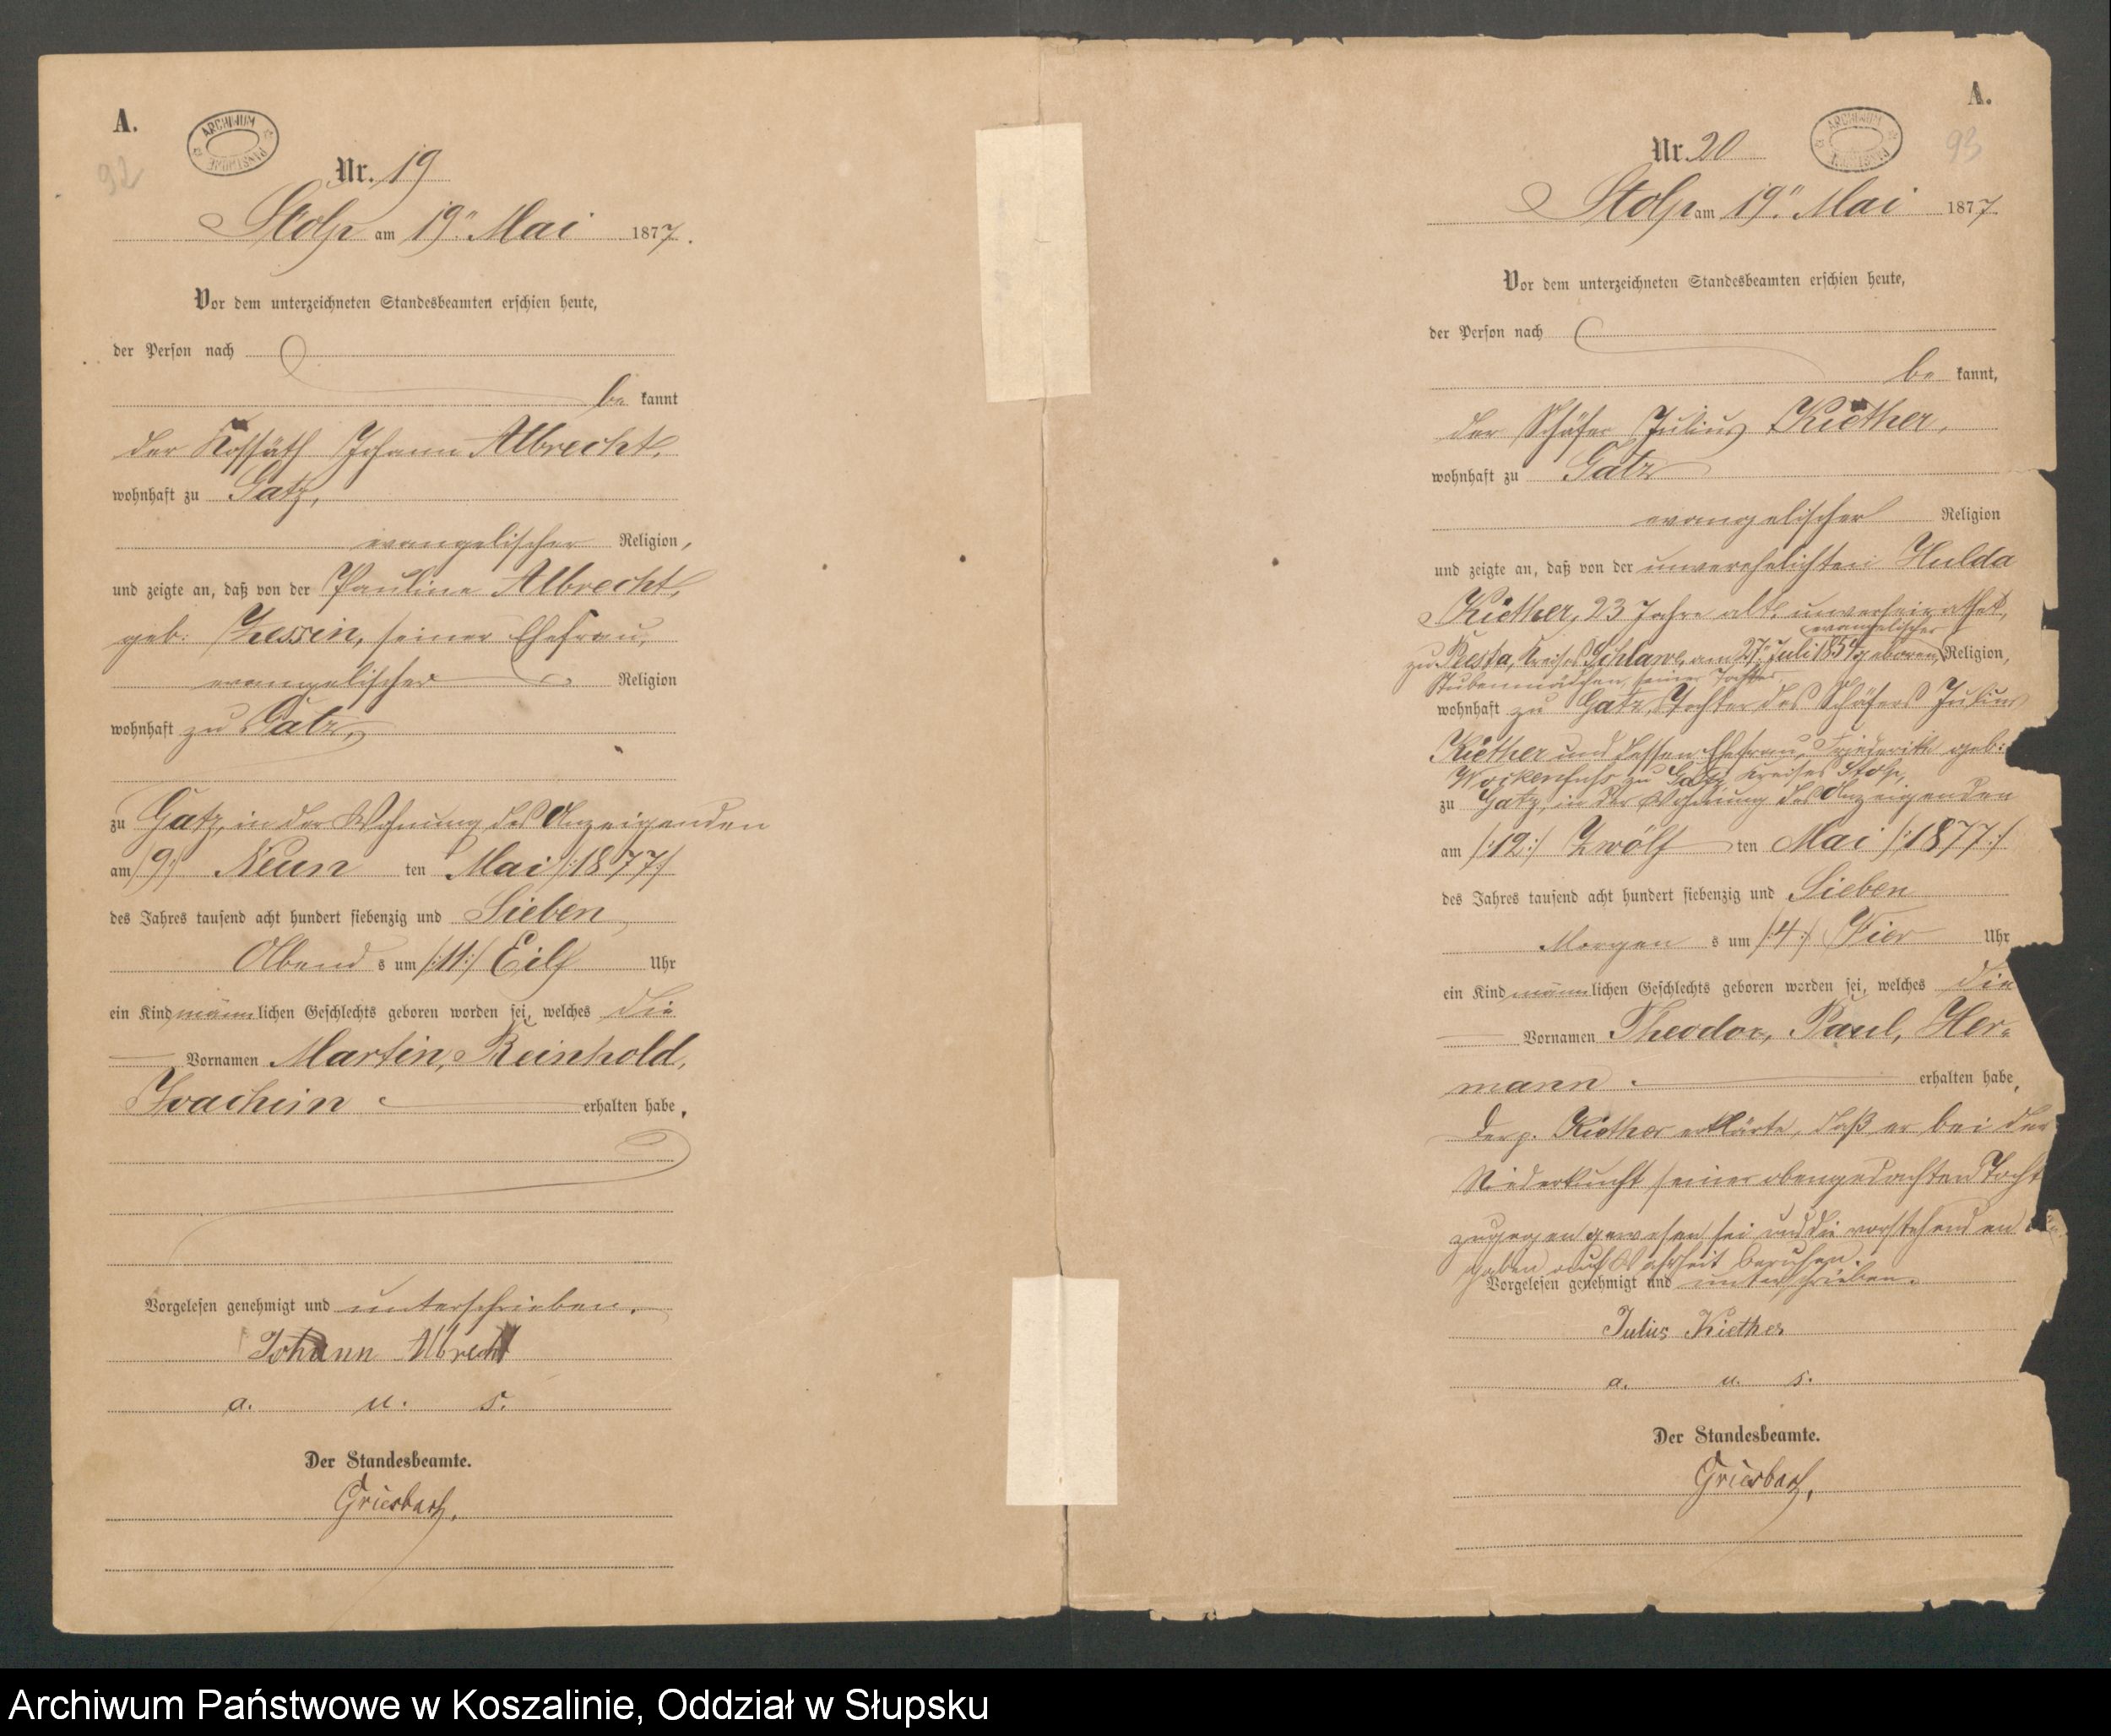 A.
92
ARCHIWUM PAŃSTWOWE
Nr. 19
Stolp am 19ᵗ Mai 1877.
Vor dem unterzeichneten Standesbeamten erschien heute,
der Person nach
be kannt
der Kossäth Johann Albrecht,
wohnhaft zu Gatz,
evangelischer Religion,
und zeigte an, daß von der Pauline Albrecht,
geb: Zessin, seiner Ehefrau,
evangelischer Religion
wohnhaft zu Gatz,
zu Gatz, in der Wohnung des Anzeigenden
am /:9:/ Neun ten Mai /:1877:/
des Jahres tausend acht hundert siebenzig und Sieben
Abend s um /:11:/ Eilf Uhr
ein Kind männ lichen Geschlechts geboren worden sei, welches die
Vornamen Martin, Reinhold,
Joachim erhalten habe.
Vorgelesen genehmigt und unterschrieben.
Johann Albrecht
a. u. s.
Der Standesbeamte.
Griesbach.
A.
93
ARCHIWUM PAŃSTWOWE
Nr. 20
Stolp am 19ᵗ Mai 1877
Vor dem unterzeichneten Standesbeamten erschien heute,
der Person nach
be kannt,
der Schäfer Julius Kiether,
wohnhaft zu Gatz
evangelischer Religion
und zeigte an, daß von der unverehelichten Hulda
Kiether, 23 Jahre alt, unverheirathet,
evangelischer
zu Kreises Schlawe, am 27ᵗ Juli 1854 geboren, Religion,
Stubenmädchen, seiner Tochter,
wohnhaft zu Gatz, Tochter des Schäfers Julius
Kiether und dessen Ehefrau, Friederike geb:
Woikenfuhs zu Gatz Kreises Stolp,
zu Gatz, in der Wohnung des Anzeigenden
am /:12:/ Zwölf ten Mai /:1877:/
des Jahres tausend acht hundert siebenzig und Sieben
Morgen s um /:4:/ Vier Uhr
ein Kind männ lichen Geschlechts geboren worden sei, welches die
Vornamen Theodor, Paul, Her-
mann erhalten habe.
Der p. Kiether erklärte, daß er bei der
Niederkunft seiner obengedachten Tocht
zugegen gewesen sei und die vorstehenden
gaben auf Wahrheit beruhen.
Vorgelesen genehmigt und unterschrieben.
Julius Kiether
a. u. s.
Der Standesbeamte.
Griesbach.
Archiwum Państwowe w Koszalinie, Oddział w Słupsku